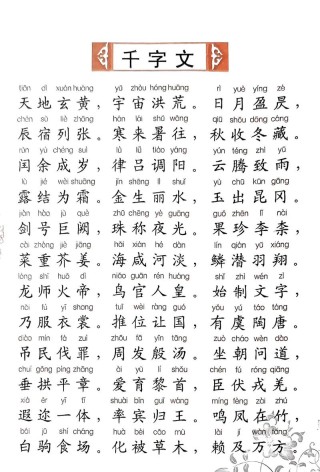 千字文
tiān dì xuán huáng yǔ zhòu hóng huāng rì yuè yíng zè
天地玄黄，宇宙洪荒。日月盈昃，
chén sù liè zhāng hán lái shǔ wǎng qiū shōu dōng cáng
辰宿列张。寒来暑往，秋收冬藏。
rùn yú chéng suì lǜ lǚ tiáo yáng yún téng zhì yǔ
闰余成岁，律吕调阳。云腾致雨，
lù jié wéi shuāng jīn shēng lì shuǐ yù chū kūn gāng
露结为霜。金生丽水，玉出昆冈。
jiàn hào jù què zhū chēng yè guāng guǒ zhēn lǐ nài
剑号巨阙，珠称夜光。果珍李柰，
cài zhòng jiè jiāng hǎi xián hé dàn lín qián yǔ xiáng
菜重芥姜。海咸河淡，鳞潜羽翔。
lóng shī huǒ dì niǎo guān rén huáng shǐ zhì wén zì
龙师火帝，鸟官人皇。始制文字，
nǎi fú yī cháng tuī wèi ràng guó yǒu yú táo táng
乃服衣裳。推位让国，有虞陶唐。
diào mín fá zuì zhōu fā yīn tāng zuò cháo wèn dào
吊民伐罪，周发殷汤。坐朝问道，
chuí gǒng píng zhāng ài yù lí shǒu chén fú róng qiāng
垂拱平章。爱育黎首，臣伏戎羌。
xiá ěr yī tǐ shuài bīn guī wáng míng fèng zài zhú
遐迩一体，率宾归王。鸣凤在竹，
bái jū shí chǎng huà bèi cǎo mù lài jí wàn fāng
白驹食场。化被草木，赖及万方。